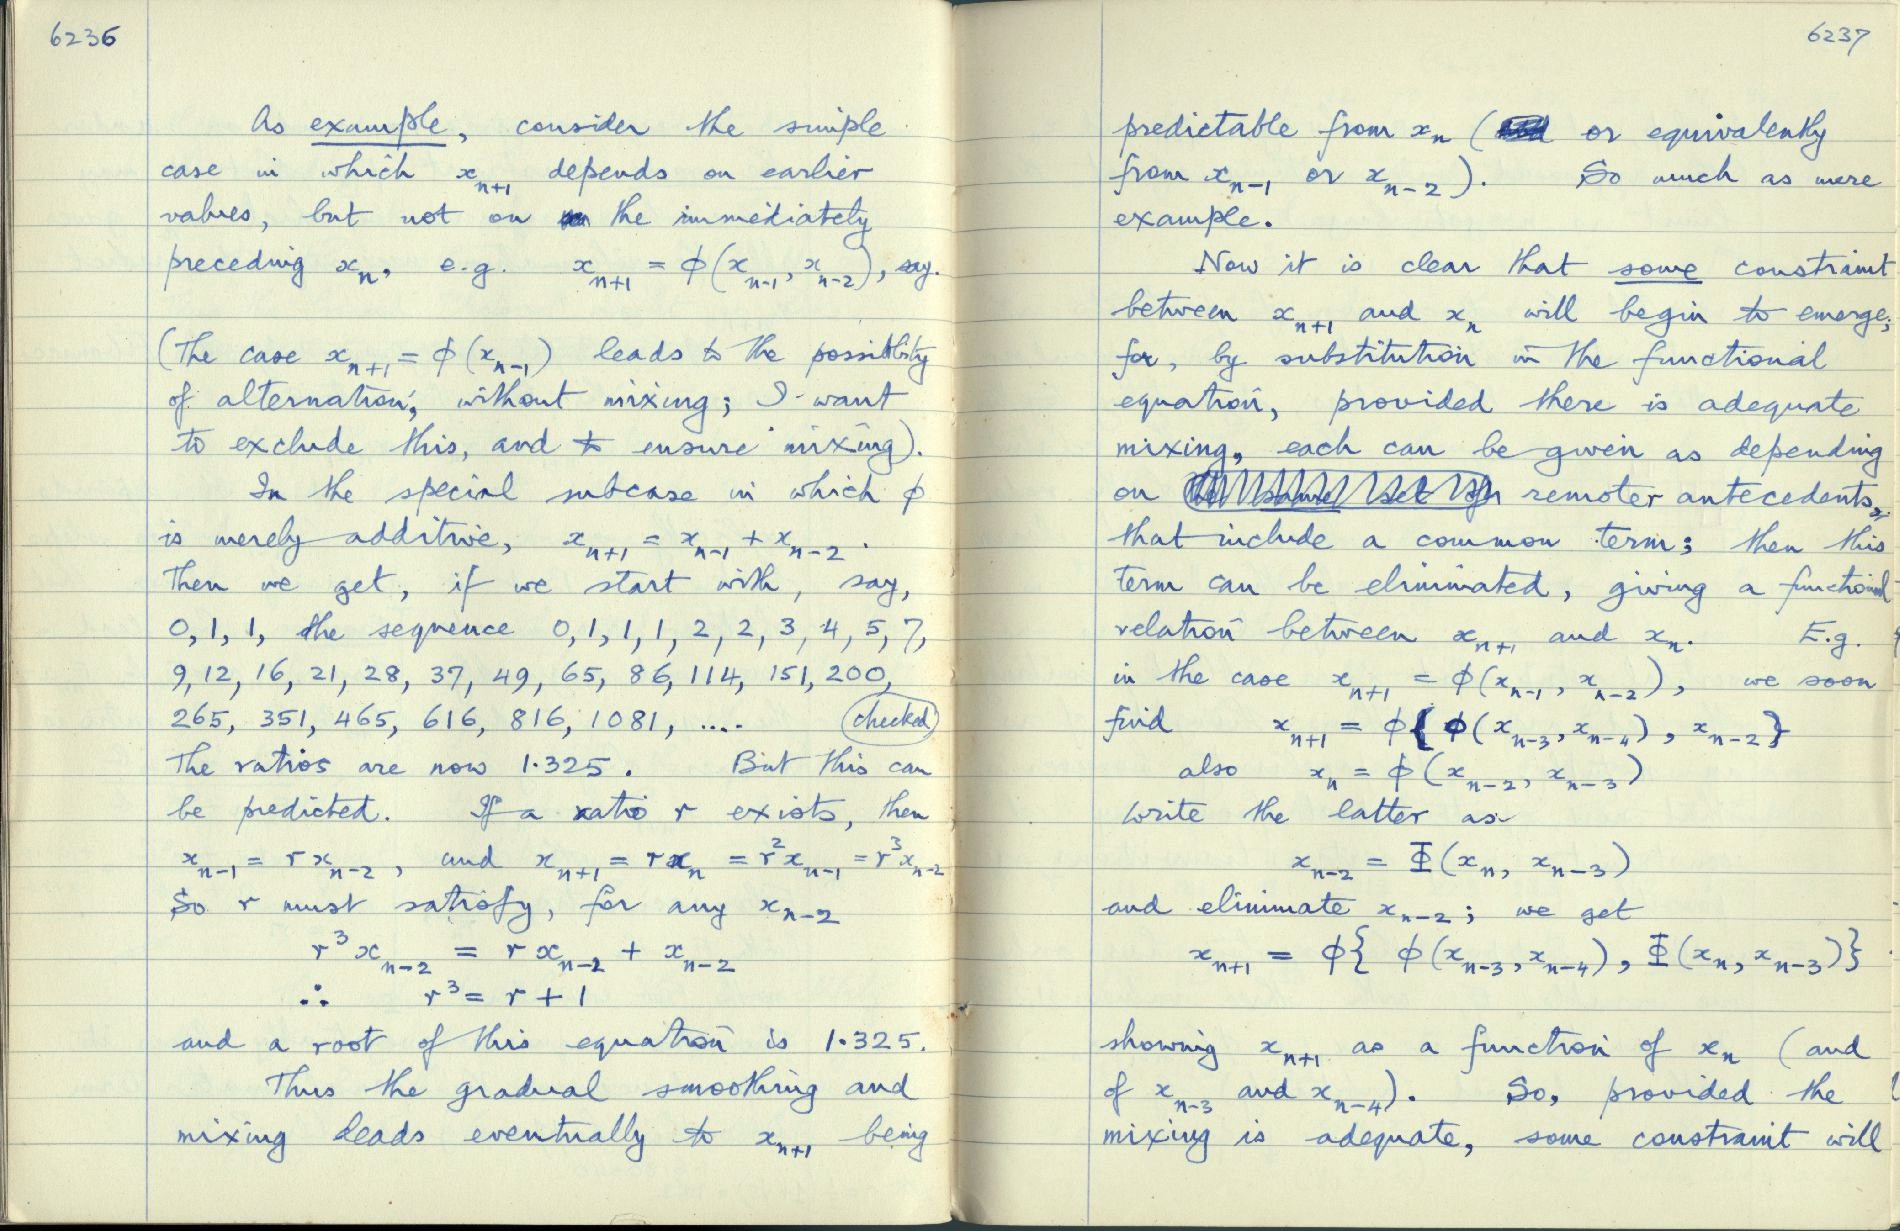 6236
As example, consider the simple
case in which xₙ₊₁ depends on earlier
values, but not on the immediately
preceding xₙ, e.g. xₙ₊₁ = ϕ(xₙ₋₁, xₙ₋₂), say.
(The case xₙ₊₁ = ϕ(xₙ₋₁) leads to the possibility
of alternation, without mixing; I want
to exclude this, and to ensure mixing).
In the special subcase in which ϕ
is merely additive, xₙ₊₁ = xₙ₋₁ + xₙ₋₂.
Then we get, if we start with, say,
0, 1, 1, the sequence 0, 1, 1, 1, 2, 2, 3, 4, 5, 7,
9, 12, 16, 21, 28, 37, 49, 65, 86, 114, 151, 200,
265, 351, 465, 616, 816, 1081, .... checked
The ratios are now 1·325. But this can
be predicted. If a ratio r exists, then
xₙ₋₁ = rxₙ₋₂, and xₙ₊₁ = rxₙ = r²xₙ₋₁ = r³xₙ₋₂
So r must satisfy, for any xₙ₋₂
r³xₙ₋₂ = rxₙ₋₂ + xₙ₋₂
∴ r³ = r + 1
and a root of this equation is 1·325.
Thus the gradual smoothing and
mixing leads eventually to xₙ₊₁ being
6237
predictable from xₙ ( or equivalently
from xₙ₋₁ or xₙ₋₂). So much as mere
example.
Now it is clear that some constraint
between xₙ₊₁ and xₙ will begin to emerge;
for, by substitution in the functional
equation, provided there is adequate
mixing, each can be given as depending
on the same set of remoter antecedents,
that include a common term; then this
term can be eliminated, giving a functional
relation between xₙ₊₁ and xₙ. E.g.
in the case xₙ₊₁ = ϕ(xₙ₋₁, xₙ₋₂), we soon
find xₙ₊₁ = ϕ{ϕ(xₙ₋₃, xₙ₋₄), xₙ₋₂}
also xₙ = ϕ(xₙ₋₂, xₙ₋₃)
Write the latter as
xₙ₋₂ = Φ(xₙ, xₙ₋₃)
and eliminate xₙ₋₂; we get
xₙ₊₁ = ϕ{ϕ(xₙ₋₃, xₙ₋₄), Φ(xₙ, xₙ₋₃)}
showing xₙ₊₁ as a function of xₙ (and
of xₙ₋₃ and xₙ₋₄). So, provided the
mixing is adequate, some constraint will